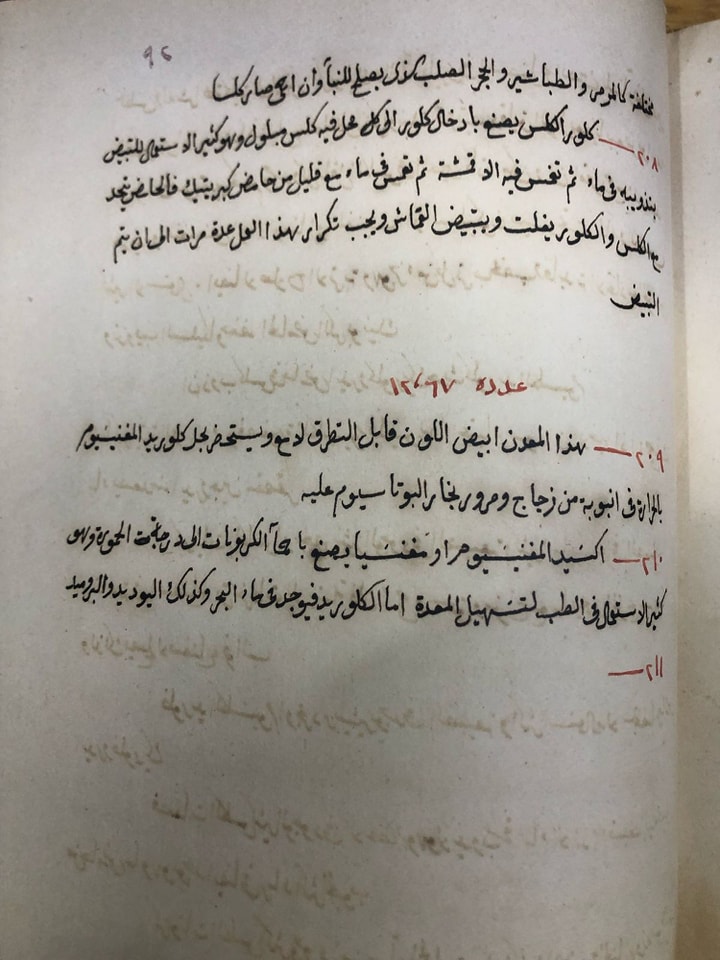 ٩٤
مختلفة كالمرمر والطباشير والحجر الصلب الذى يصلح للبنأ وان احمى صار كلسا
٢٠٨ — كلور الكلس يصنع بادخال كلور الى كل محل فيه كلس مبلول وهو كثير الاستعمال للتبيض
بتذويبه فى ماء ثم تغمس فيه الاقمشة ثم تغمس فى ماء مع قليل من حامض كبريتيك فالحامض يتحد
مع الكلس والكلور يفلت ويبيض القماش ويجب تكرار هذا العمل عدة مرات الى ان يتم
التبيض
عدده ١٢٬٦٧
٢٠٩ — هذا المعدن ابيض اللون قابل التطرق لامع ويستحضر بحل كلوريد المغنيسيوم
بالحرارة فى انبوبة من زجاج ومرور بخار البوتاسيوم عليه
٢١٠ — اكسيد المغنيسيوم او مغنسيا يصنع باحمآ الكربونات الى درجة الحمورة وهو
كثير الاستعمال فى الطب لتسهيل المعدة اما الكلوريد فيوجد فى ماء البحر وكذلك اليوديد والبروميد
٢١١ —